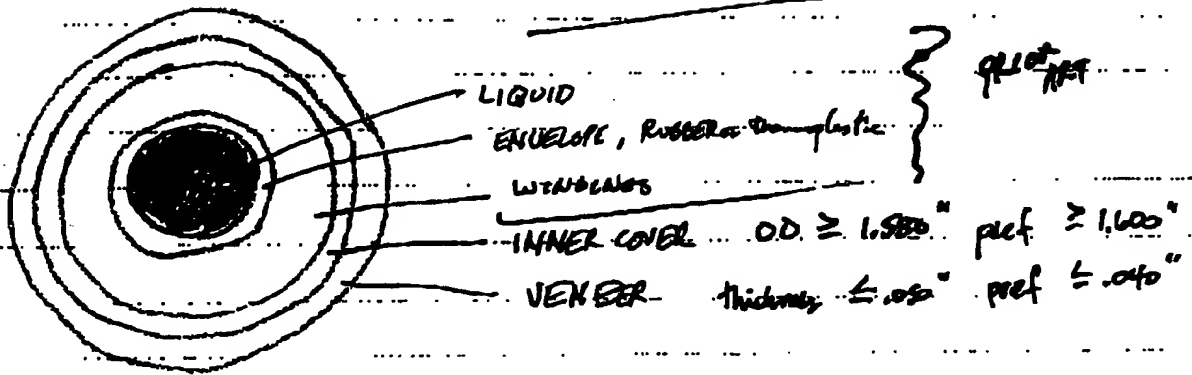 LIQUID
ENVELOPE, RUBBER or thermoplastic
WINDINGS
PRIOR ART
INNER COVER O.D. ≥ 1.580" pref ≥ 1.600"
VENEER thickness ≤ .050" pref ≤ .040"